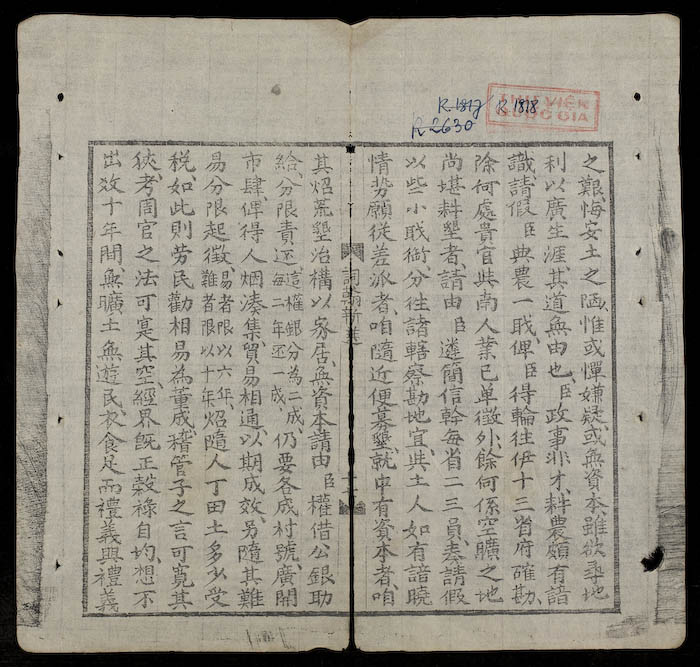 R.1817 / R 1818
R 2630
THƯ VIỆN
QUỐC GIA
之艱悔安土之陋惟或憚嫌疑或無資本雖欲尋地
利以廣生涯其道無由也臣政事非才耕農頗有諳
識請假臣典農一職俾臣得輪往伊十三省府確勘
除何處貴官與南人業已單徵外餘何係空曠之地
尚堪耕墾者請由臣遴簡信幹每省二三員奏請假
以些小職銜分往諸轄察勘地宜與土人如有諳曉
情勢願從差派者咱隨近便募墾就中有資本者咱
詞翰新選
其炤荒墾治構以家居無資本請由臣權借公銀助
給分限責还這權銀分為二成每二年还一成仍要各成村號廣開
市肆俾得人烟湊集貿易相通以期成效另隨其難
易分限起徵易者限以六年難者限以十年炤隨人丁田土多少受
稅如此則勞民勸相易為董成稽管子之言可寬其
狹考周官之法可寔其空經界既正穀祿自均想不
出效十年間無曠土無遊民衣食足而禮義興禮義